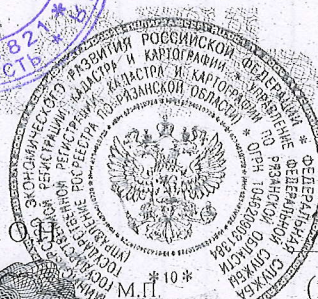 821 *
СТЬ *
ЭКОНОМИЧЕСКОГО РАЗВИТИЯ РОССИЙСКОЙ ФЕДЕРАЦИИ * ФЕДЕРАЛЬНАЯ СЛУЖБА
РЕГИСТРАЦИИ, КАДАСТРА И КАРТОГРАФИИ * УПРАВЛЕНИЕ ФЕДЕРАЛЬНОЙ СЛУЖБЫ
ГОСУДАРСТВЕННОЙ РЕГИСТРАЦИИ, КАДАСТРА И КАРТОГРАФИИ ПО РЯЗАНСКОЙ ОБЛАСТИ
(УПРАВЛЕНИЕ РОСРЕЕСТРА ПО РЯЗАНСКОЙ ОБЛАСТИ) * ОГРН
* 10 *
М.П.
(